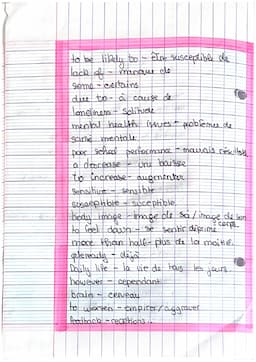 to be likely to - être susceptible de
lack of - manque de
some - certains
due to - à cause de
loneliness - solitude
mental health issues - problèmes de
santé mentale
poor school performance - mauvais résultats
a decrease - une baisse
to increase - augmenter
sensitive - sensible
susceptible - suceptible
body image - image de soi / image de son
corps
to feel down - se sentir déprimé
more than half - plus de la moitié.
already - déjà
Daily life - la vie de tous les jours.
however - cependant
brain - cerveau
to worsen - empirer/aggraver
feedback - reactions.